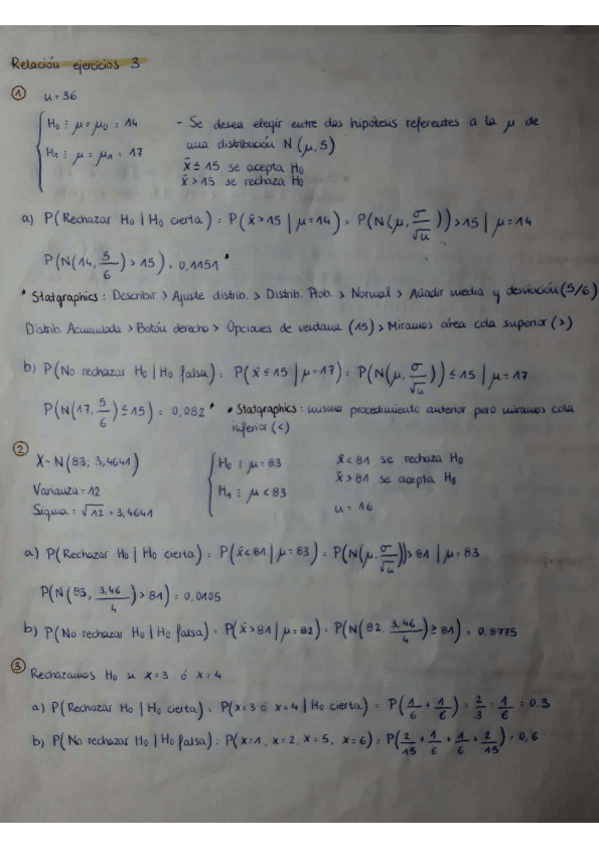 Relación ejercicios 3
① u = 36
H₀ : μ = μ₀ = 14
H₁ : μ = μ₁ = 17
- Se desea elegir entre dos hipótesis referentes a la μ de
una distribución N(μ, 5)
x̄ ≤ 15 se acepta H₀
x̄ > 15 se rechaza H₀
a) P(Rechazar H₀ | H₀ cierta) = P(x̄ > 15 | μ = 14) = P(N(μ, σ/√u)) > 15 | μ = 14
P(N(14, 5/6) > 15) = 0,1151 *
* Statgraphics : Describir > Ajuste distrib. > Distrib. Prob. > Normal > Añadir media y desviación (5/6)
Distrib Acumulada > Botón derecho > Opciones de ventana (15) > Miramos área cola superior (>)
b) P(No rechazar H₀ | H₀ falsa) = P(x̄ ≤ 15 | μ = 17) = P(N(μ, σ/√u)) ≤ 15 | μ = 17
P(N(17, 5/6) ≤ 15) = 0,082 * * Statgraphics : mismo procedimiento anterior pero miramos cola
inferior (<)
②
X ~ N(83; 3,4641)
Varianza = 12
Sigma = √12 = 3,4641
H₀ : μ = 83
H₁ : μ < 83
x̄ < 81 se rechaza H₀
x̄ > 81 se acepta H₀
u = 16
a) P(Rechazar H₀ | H₀ cierta) = P(x̄ < 81 | μ = 83) = P(N(μ, σ/√u)) > 81 | μ = 83
P(N(83, 3,46/4) > 81) = 0,0105
b) P(No rechazar H₀ | H₀ falsa) = P(x̄ > 81 | μ = 82) = P(N(82, 3,46/4) ≥ 81) = 0,8775
③ Rechazamos H₀ si x = 3 ó x = 4
a) P(Rechazar H₀ | H₀ cierta) = P(x = 3 ó x = 4 | H₀ cierta) = P(1/6 + 1/6) = 2/3 = 1/6 = 0,3
b) P(No rechazar H₀ | H₀ falsa) = P(x = 1, x = 2, x = 5, x = 6) = P(2/15 + 1/6 + 1/6 + 2/15) = 0,6